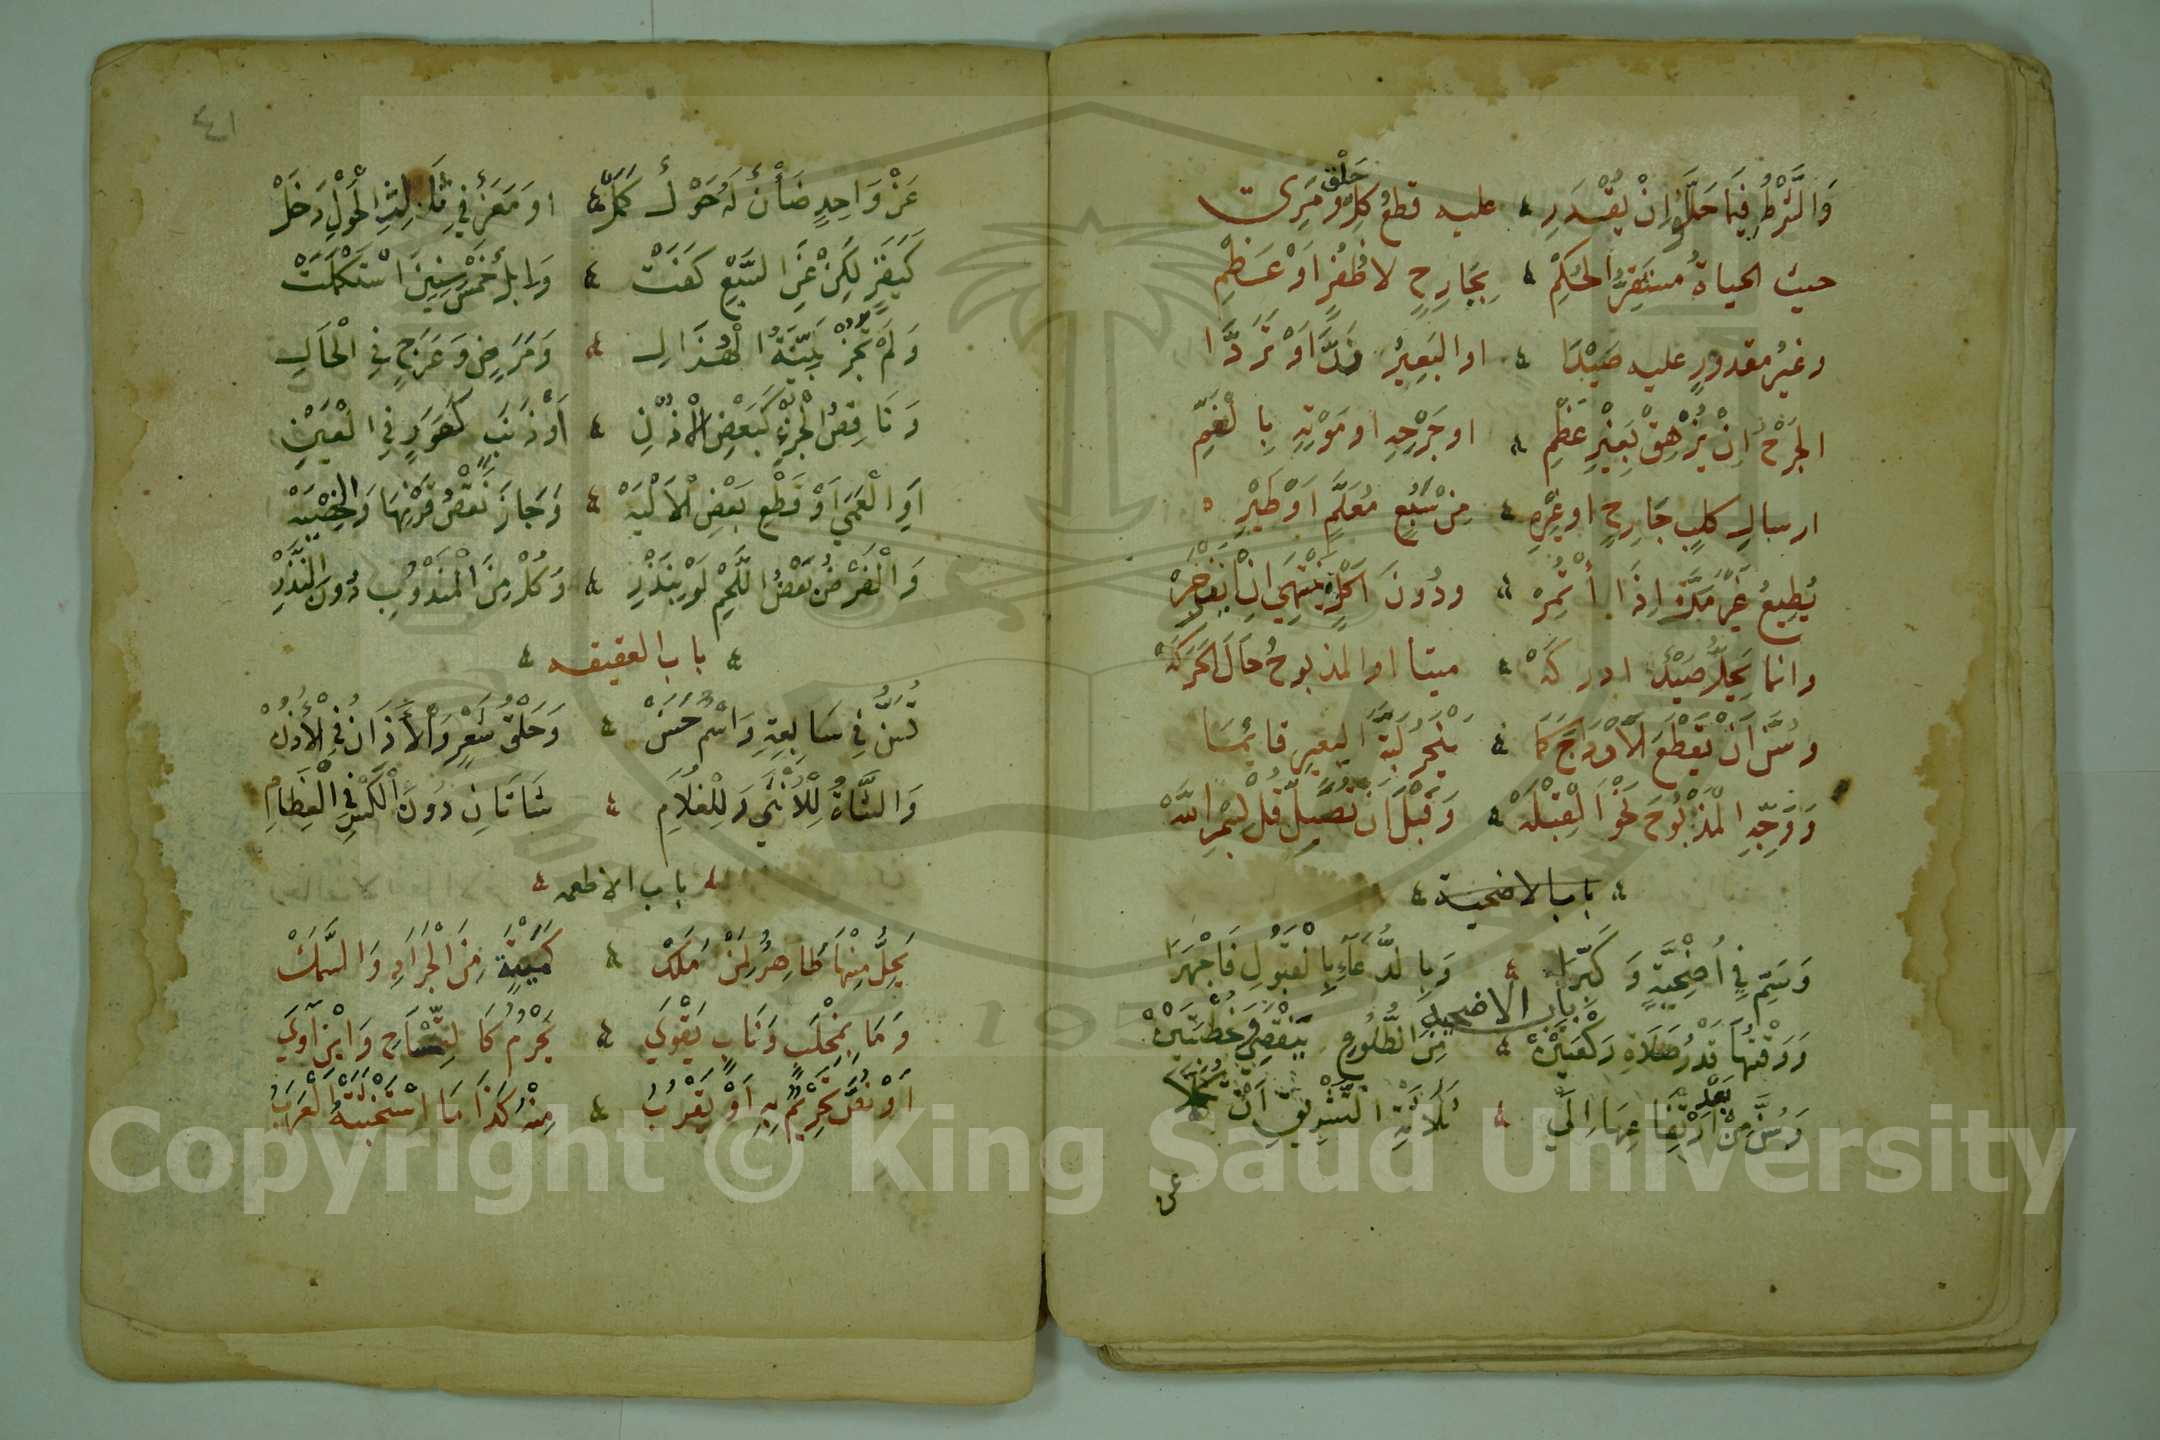 وَالشَّرْطُ فِيمَا حَلَّلُوا اِنْ يُقْدَرِ عليه قطعُ كلِّ حَلْقٍ وَمَرِي
حيث الحياةُ مستقرُّ الحُكْمِ بِجَارِحٍ لا ظُفُرٍ اَوْ عَظْمِ
وغيرُ مقدورٍ عليه صَيْدَا اوالبَعِيرُ نَدَّ اَوْ تَرَدَّا
الجَرْحُ اِنْ يُزْهِقْ بِغَيْرِ عَظْمِ اوجَرْحِهِ اومَوْتِهِ بِالْغَمِّ
ارسالِ كلبٍ جَارِحٍ اوغَيْرِهِ مِنْ سَبُعٍ مُعَلَّمٍ اَوْ طَيْرِهِ
يُطِيعُ غَيْرَ مَرَّةٍ اِذَا أْتُمِرْ ودُونَ اَكْلٍ يَنْتَهِي اِنْ يَنْزَجِرْ
وانما يَحِلُّ صَيْدٌ ادركَهْ ميتا اوالمذبوحُ حَالَ الحَرَكَهْ
وسُنَّ اَنْ يَقْطَعَ الْاَوْدَاجَ كَمَا يَنْحَرُ لَبَّةَ البعيرِ قائمَا
وَوَجِّهِ الْمَذْبُوحَ نَحْوَ الْقِبْلَهْ وَقَبْلَ اَنْ تُصَلِّ قُلْ بِسْمِ اللَّهْ
باب الاضحية
وَسَمِّ فِي اُضْحِيَّةٍ وَكَبِّرَا وَبِالدُّعَآءِ بِالْقَبُولِ فَاجْهَرَا
باب الاضحية
وَوَقْتُهَا قَدْرُ صَلَاةِ رَكْعَتَيْنْ مِنَ الطُّلُوعِ يَنْقَضِي وَخُطْبَتَيْنْ
وَسُنَّ مِنْ بَعْدِ ارْتِفَاعِهَا اِلَى ثَلَاثَةِ التَّشْرِيقِ اَنْ
عن
٤١
عَنْ وَاحِدٍ ضَأْنٌ لَهُ حَوْلٌ كَمَلْ اومَعَزٌ فِي ثَالِثِ الْحَوْلِ دَخَلْ
كَبَقَرٍ لَكِنْ عَنِ السَّبْعِ كَفَتْ وَاِبلٌ خَمْسَ سِنِينَ اسْتَكْمَلَتْ
وَلَمْ تَجُزْ بَيِّنَةُ الْهُزَالِ وَمَرَضٍ وَعَرَجٍ فِي الْحَالِ
وَنَاقِصُ الْجُزْءِ كَبَعْضِ الْاُذْنِ اَوْ ذَنَبٍ كَعَوَرٍ فِي الْعَيْنِ
اَوِ الْعَمَى اَوْ قَطْعِ بَعْضِ الْاَلْيَهْ وَجَازَ نَقْصُ قَرْنِهَا وَالْخِصْيَهْ
وَالْفَرْضُ بَعْضُ اللَّحْمِ لَوْ بِنَذْرِ وَكُلْ مِنَ الْمَنْدُوبِ دُونَ النَّذْرِ
باب العقيقه
تُسَنُّ فِي سَابِعِهِ وَاسْمٌ حَسَنْ وَحَلْقُ شَعْرٍ وَالْأَذَانُ فِي الْأُذُنْ
وَالشَّاةُ لِلْأُنْثَى وَلِلْغُلَامِ شَاتَانِ دُونَ الْكَسْرِ فِي الْعِظَامِ
باب الاطعمه
يَحِلُّ مِنْهَا طَاهِرٌ لِمَنْ مَلَكْ كَمَيْتَةٍ مِنَ الْجَرَادِ وَالسَّمَكْ
وَمَا بِمِخْلَبٍ وَنَابٍ يَقْوَى يَحْرُمُ كَالتِّمْسَاحِ وَابْنِ آوَى
اَوْ نُصَّ تَحْرِيمٌ بِهِ اَوْ يَقْرُبُ مِنْهُ كَذَا مَا اسْتَخْبَثَتْهُ الْعَرَبُ
Copyright © King Saud University